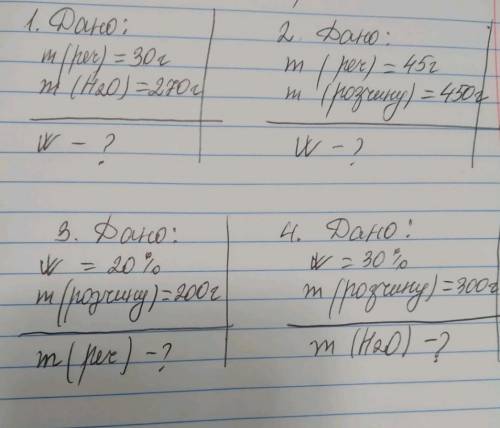 1. Дано:
m (реч) = 30г
m (H2O) = 270г
W - ?
2. Дано:
m (реч) = 45г
m (розчину) = 450г
W - ?
3. Дано:
W = 20%
m (розчину) = 200г
m (реч) - ?
4. Дано:
W = 30%
m (розчину) = 300г
m (H2O) - ?